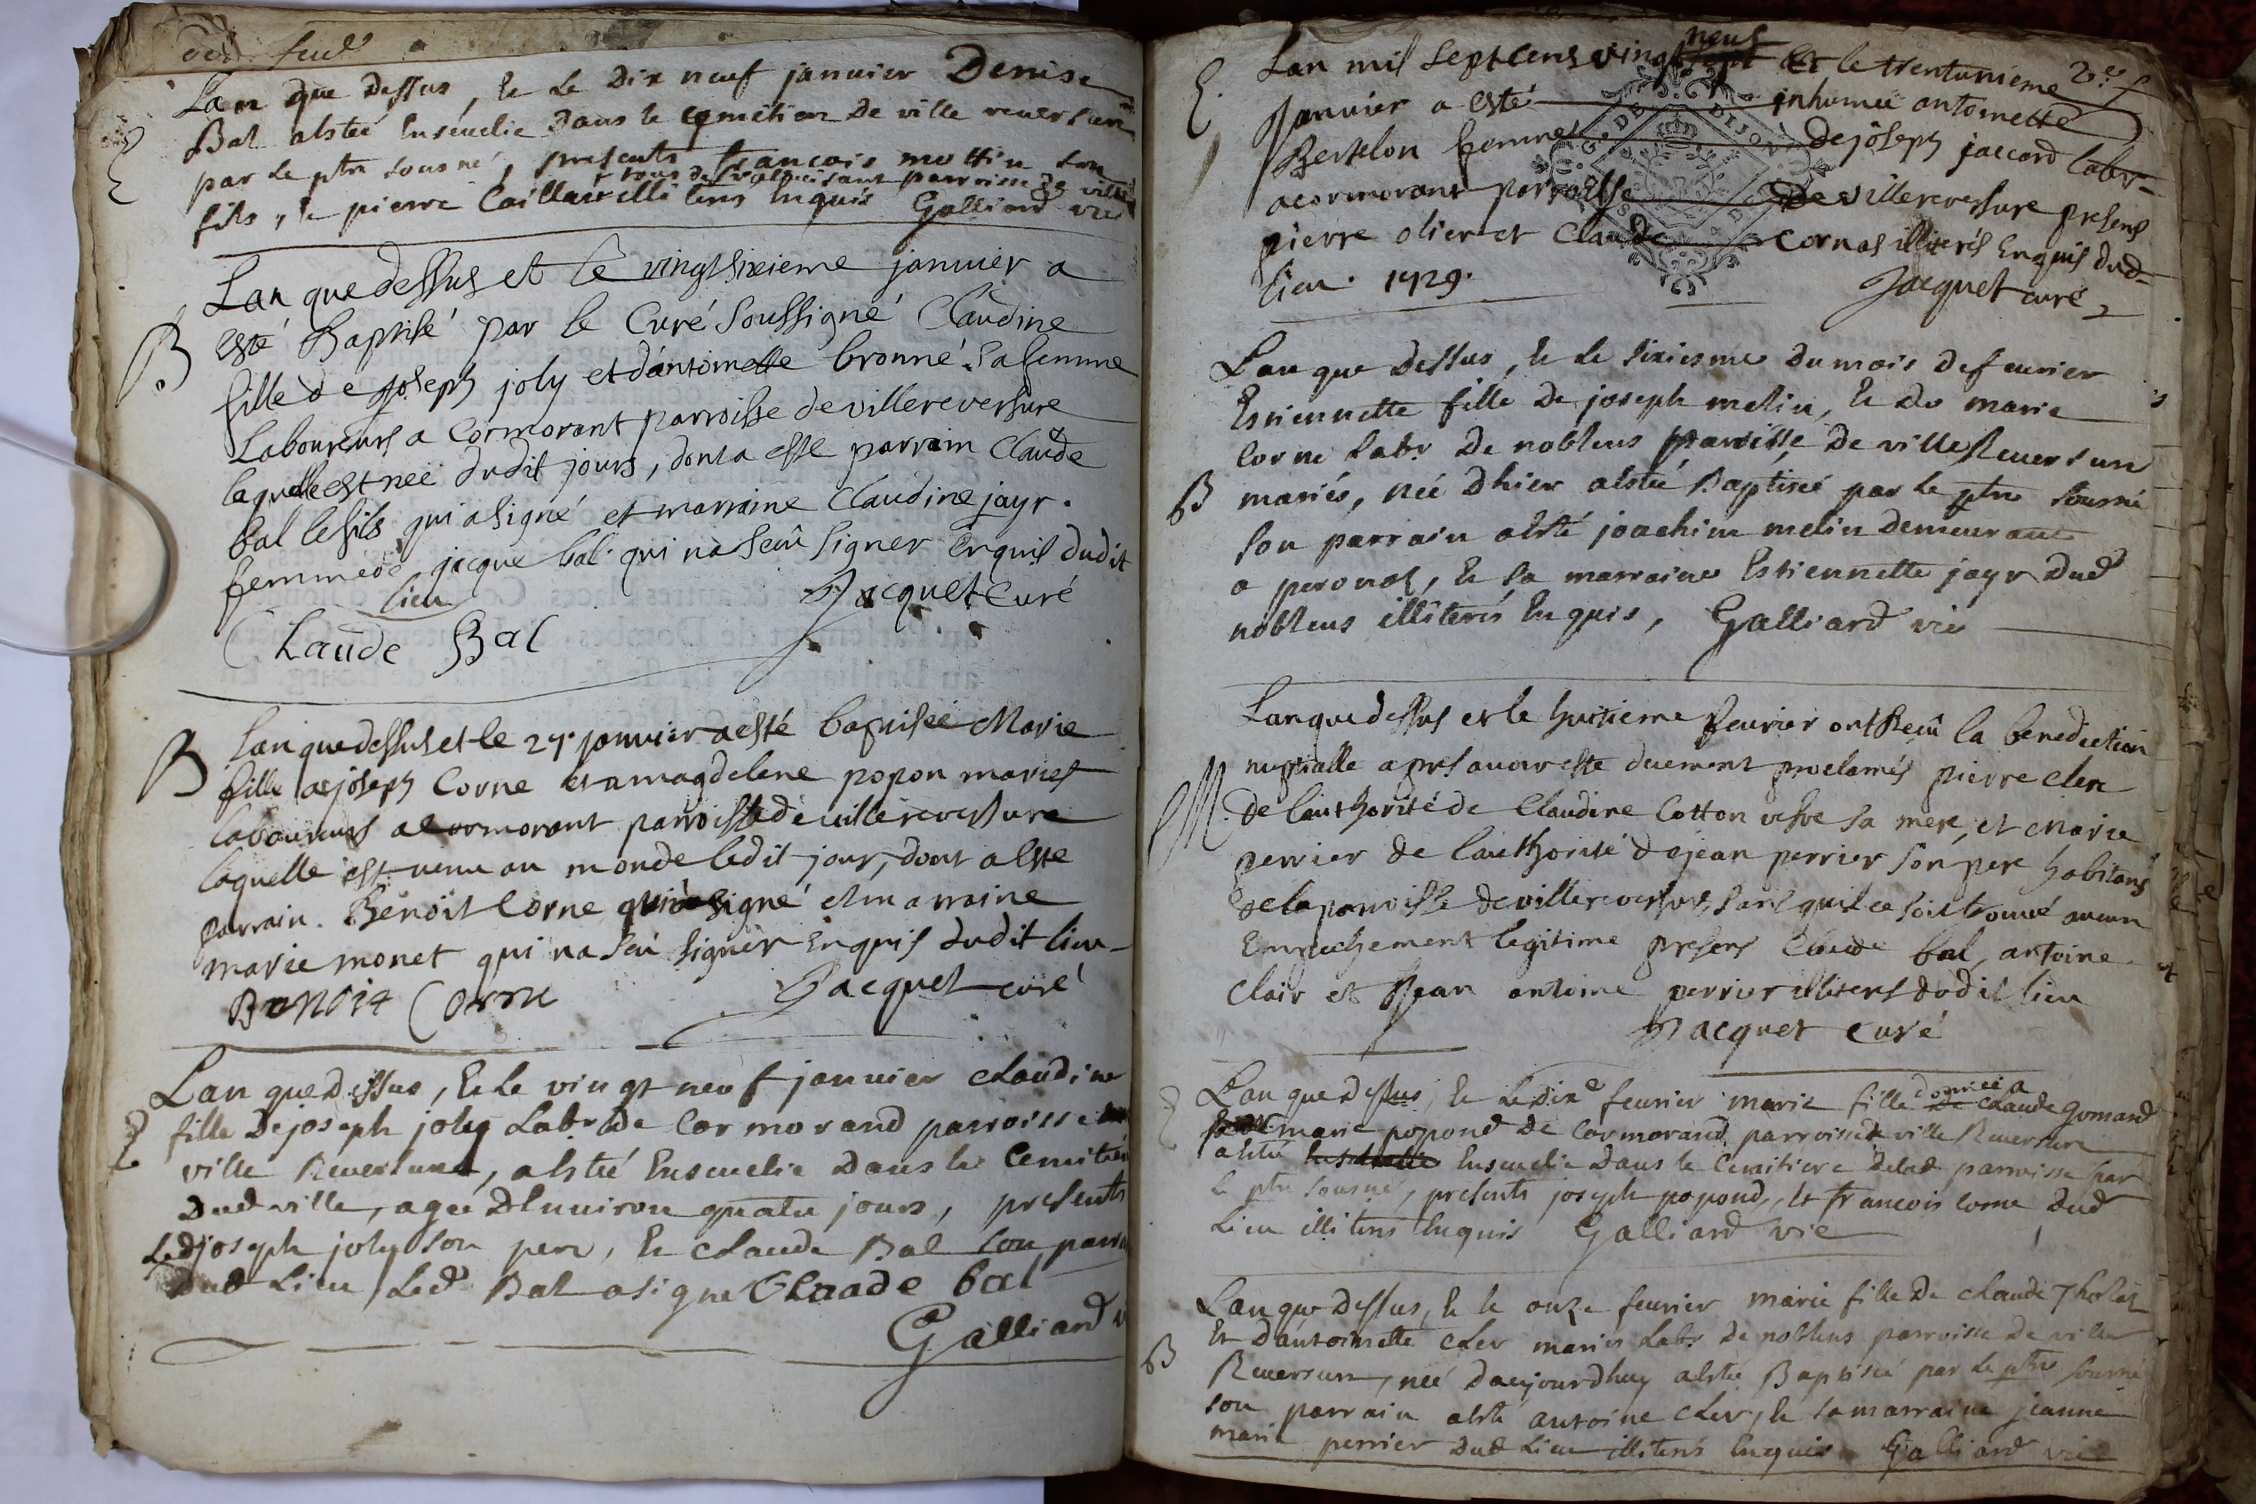 Lan que dessus, & Le Dix neuf janvier Denise
Bal alsteé Enseuelie Dans le cemetiere De ville reuersure
par Le ptre sousné, presents francois mottin son
tous de parroisse de ville
fils, & pierre Caillat illiterés Enquis Galliard vic
E
Lan que dessus et le vingtsixieme janvier a
B
esté Baptisé par le Curé soussigné Claudine
fille de joseph joly et dantoinette bronne sa femme
Laboureurs a Cormorant parroisse de villereversure
laquelle est neé dudit jours, dont a esté parrain Claude
bal le fils qui a signé et marraine Claudine jayr.
femme de jacque bal qui na seû signer Enquis dudit
lieu Jacquet Curé
Claude Bal
B
Lan que dessus et le 27. janvier a esté baptiseé Marie
fille de joseph Corne et magdelene popon mariés
laboureurs a cormorant parroisse de villereversure
laquelle est venu au monde ledit jour, dont a esté
parrain. Benoit Corne qui a signé et marraine
marie monet qui na seu signer Enquis dudit lieu
Benoit Corne Jacquet curé
Lan que Dessus, & Le vingt neuf janvier claudine
E
fille De joseph joly Labr De Cormorand parroisse
ville Reuersure, alsteé Enseuelie Dans le Cemitiere
Dud ville, ageé DEnuiron quatre jours, presents
Led joseph joly son pere, & claude Bal son parrain
Dud Lieu, Led Bal a signe Claade bal
Galliard v
E.
Lan mil septcens vingt neuf Et le trentunieme
Janvier a esté inhumeé antoinette
Berthelon femme de joseph jaccard labr
a cormorant parroisse de villereversure presens
pierre olier et Claude cornas illiterés Enquis dud
lieu. 1729. Jacquet curé
Lan que Dessus, & Le sixiesme Du mois De feurier
Estiennette fille De joseph melin, & De marie
Corne Labr De noblens parroisse De ville Reuersure
B
mariés, neé Dhier alsteé Baptiseé par Le ptre sousné
son parrain alsté joachim melin Demeurant
a peronas, & sa marraine Estiennette jayr Dud
noblens illiterés Enquis, Galliard vic
Lan que dessus et le huitieme feurier ont Receu la benediction
M.
nuptialle apres auoir esté duement proclamés pierre clere
de lauthorité de Claudine Cotton vefve sa mere, et Marie
perrier de lauthorité de jean perrier son pere habitans
de la parroisse de villereversure, sans quil ce soit trouvé aucun
Empechement legitime presens Claude bal, antoine
Clair et Jean antoine perrier illiterés dudit lieu
Jacquet Curé
E
Lan que Dessus, & Le dixe feurier marie fille donneé a claude gomand
marie popond De Cormorand parroisse ville Reuersure
alsteé Enseuelie Dans le Cemitiere Delad parroisse par
Le ptre sousné, presents joseph popond, & francois corne Dud
Lieu illiterés Enquis Galliard vic
Lan que Dessus, & le onze feurier marie fille De claude Tholas
Et Dantoinette cler mariés Labr De noblens parroisse De ville
B
Reuersure, neé Daujourdhuy alsteé Baptiseé par Le ptre sousné
son parrain alsté antoine cler, & sa marraine jeanne
marie perrier Dud Lieu illiterés Enquis Galliard vic